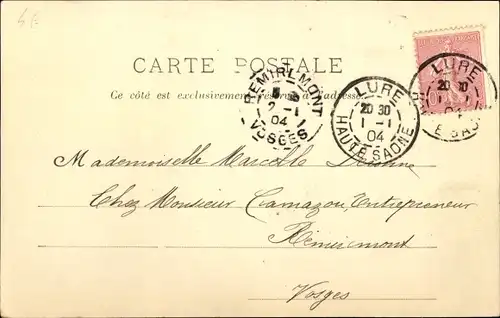 CARTE POSTALE
Ce côté est exclusivement réservé à l'adresse.
REMIREMONT
5
2-1
04
VOSGES
LURE
20 30
1-1
04
HAUTE SAONE
LURE
20 30
04
Mademoiselle Marcelle
Chez Monsieur Entrepreneur
Remiremont
Vosges